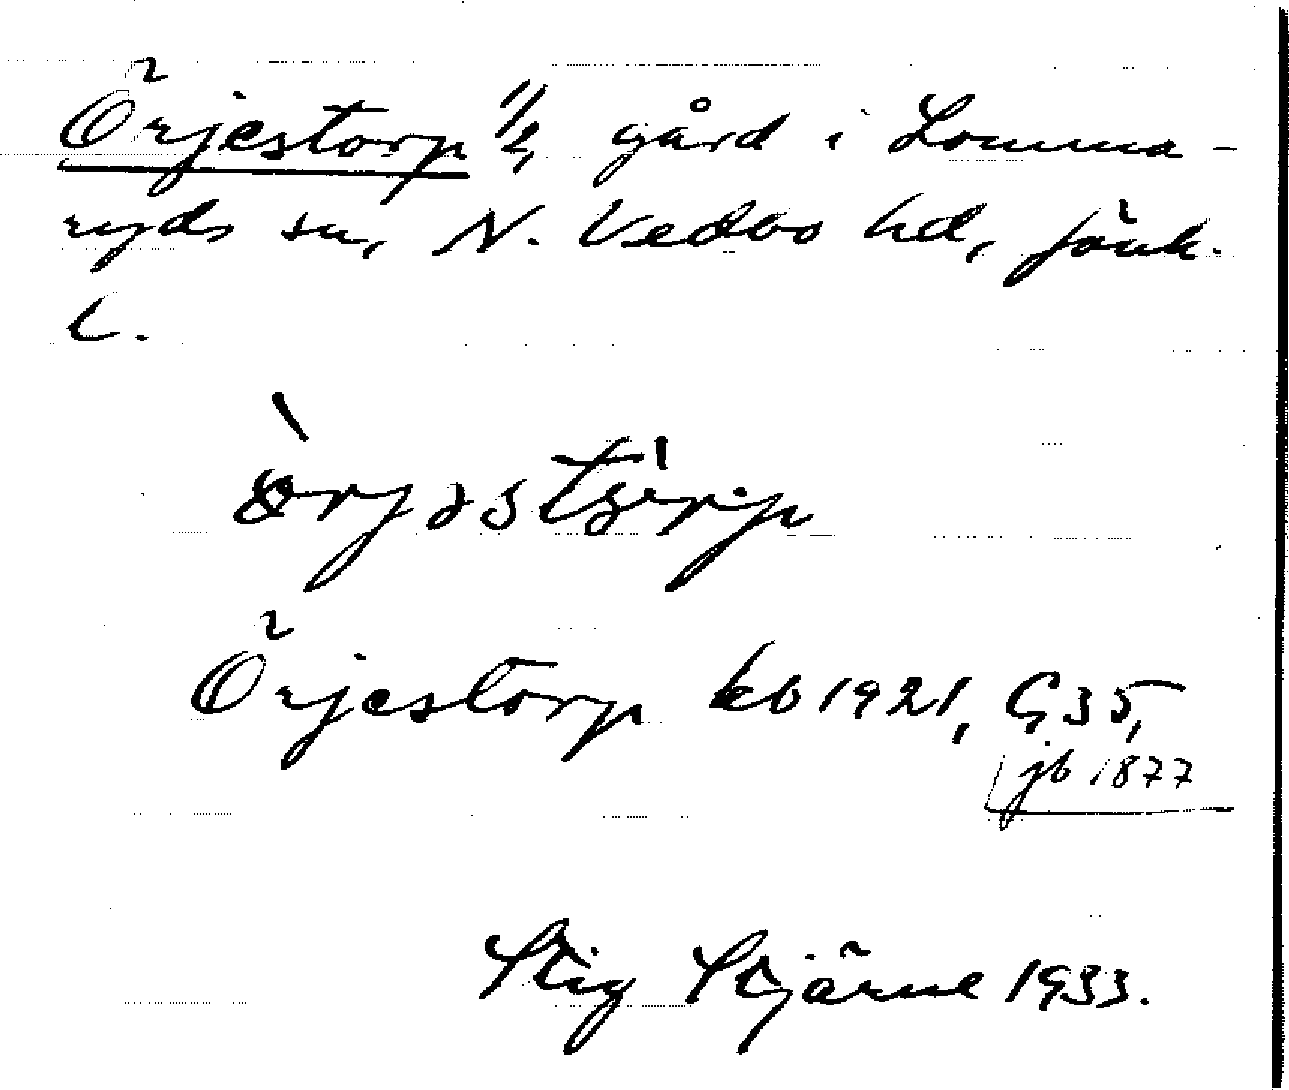 Örjestorp 1/2, gård i Lomma-
ryds sn, N. Vedbo hd, Jönk.
l.
Örjestorp kb 1921, G 35,
jb 1877
Stig Stjärne 1933.